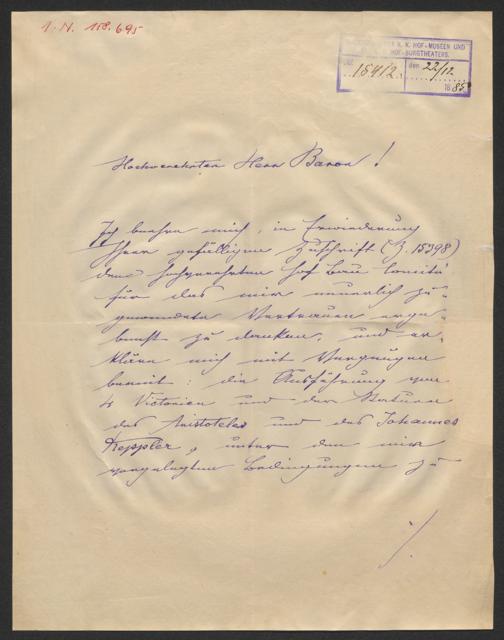 I. N. 158.695
K. K. HOF-MUSEEN UND
HOF-BURGTHEATERS.
15412. den 22/12.
1885
Hochverehrter Herr Baron!
Ich beehre mich, in Erwiederung
Ihrer gefälligen Zuschrift (Z. 15398)
dem hochgeehrten Hof Bau Comité
für das mir neuerlich zu-
gewendete Vertrauen erge-
benst zu danken, und er-
kläre mich mit Vergnügen
bereit: die Ausführung von
4 Victorien und der Statuen
des Aristoteles und des Johannes
Keppler, unter den mir
vorgelegten Bedingungen zu
./.